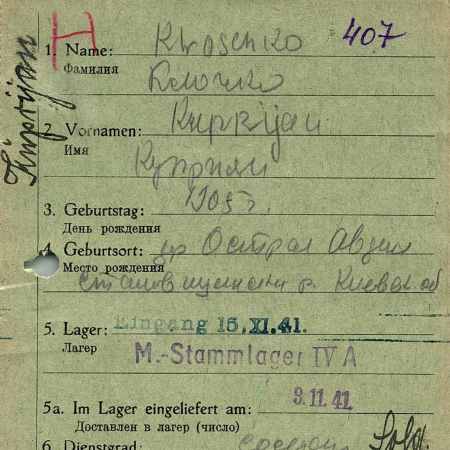 H
407
Kuprijan
1. Name: Kloschko
Фамилия
Клочко
2. Vornamen: Kuprijan
Имя
Куприян
3. Geburtstag: 1905 г.
День рождения
4. Geburtsort: Острая
Место рождения
р. Киевск об
5. Lager: Eingang 15. XI. 41.
Лагер
M.-Stammlager IV A
5a. Im Lager eingeliefert am: 3. 11. 41.
Доставлен в лагер (число)
6. Dienstgrad: Sold.